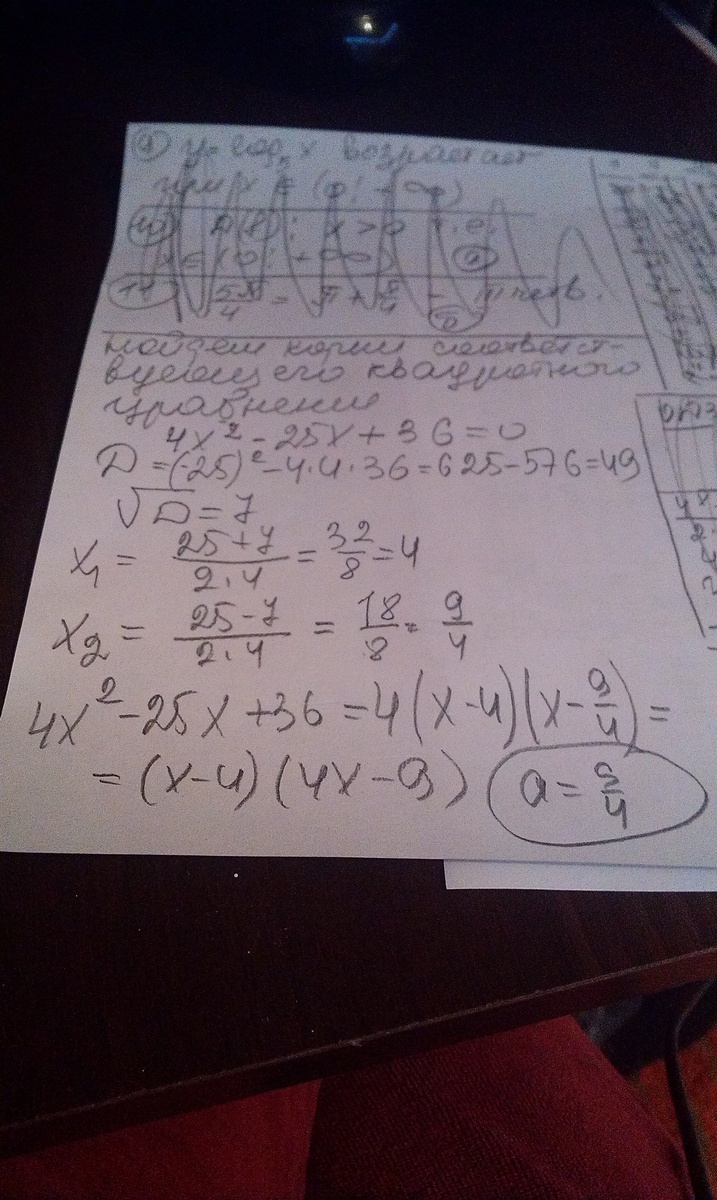 9) y = log x возрастает
при x ∈ (0; +∞)
10) D(f): x > 0 т.е.
x ∈ (0; +∞) а
11) 5π/4 = π + π/4 – III четв.
найдем корни соответст-
вующего квадратного
уравнения
4x² - 25x + 36 = 0
D = (-25)² - 4·4·36 = 625 - 576 = 49
√D = 7
x₁ = (25+7)/(2·4) = 32/8 = 4
x₂ = (25-7)/(2·4) = 18/8 = 9/4
4x² - 25x + 36 = 4(x-4)(x-9/4) =
= (x-4)(4x-9) a = 9/4